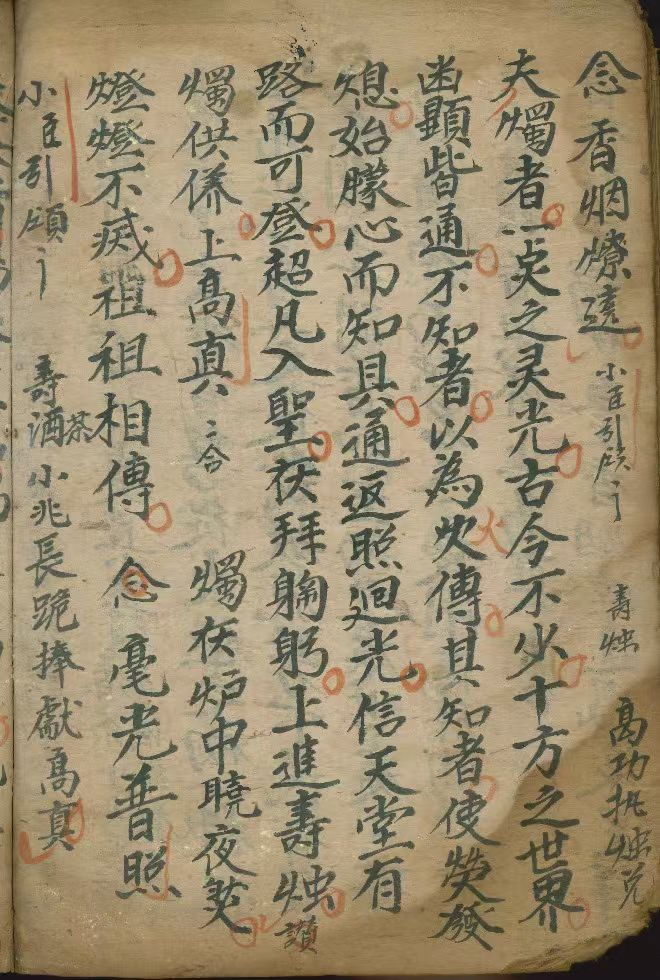 念 香烟燎遶 小臣引頋〻 壽烛 高功执烛兑
夫燭者一点之灵光古今不少十方之世界
幽顯皆通不知者以為火傳其知者使熒發
熄始朦心而知具通返照迴光信天堂有
路而可登超凡入聖茯拜躹躬上進壽烛讃
燭供养上高真〻合 燭茯炉中曉夜𤇆
燈燈不烕祖祖相傳 念毫光普照
小臣引頋〻 壽酒茶小兆長跪捧獻高真